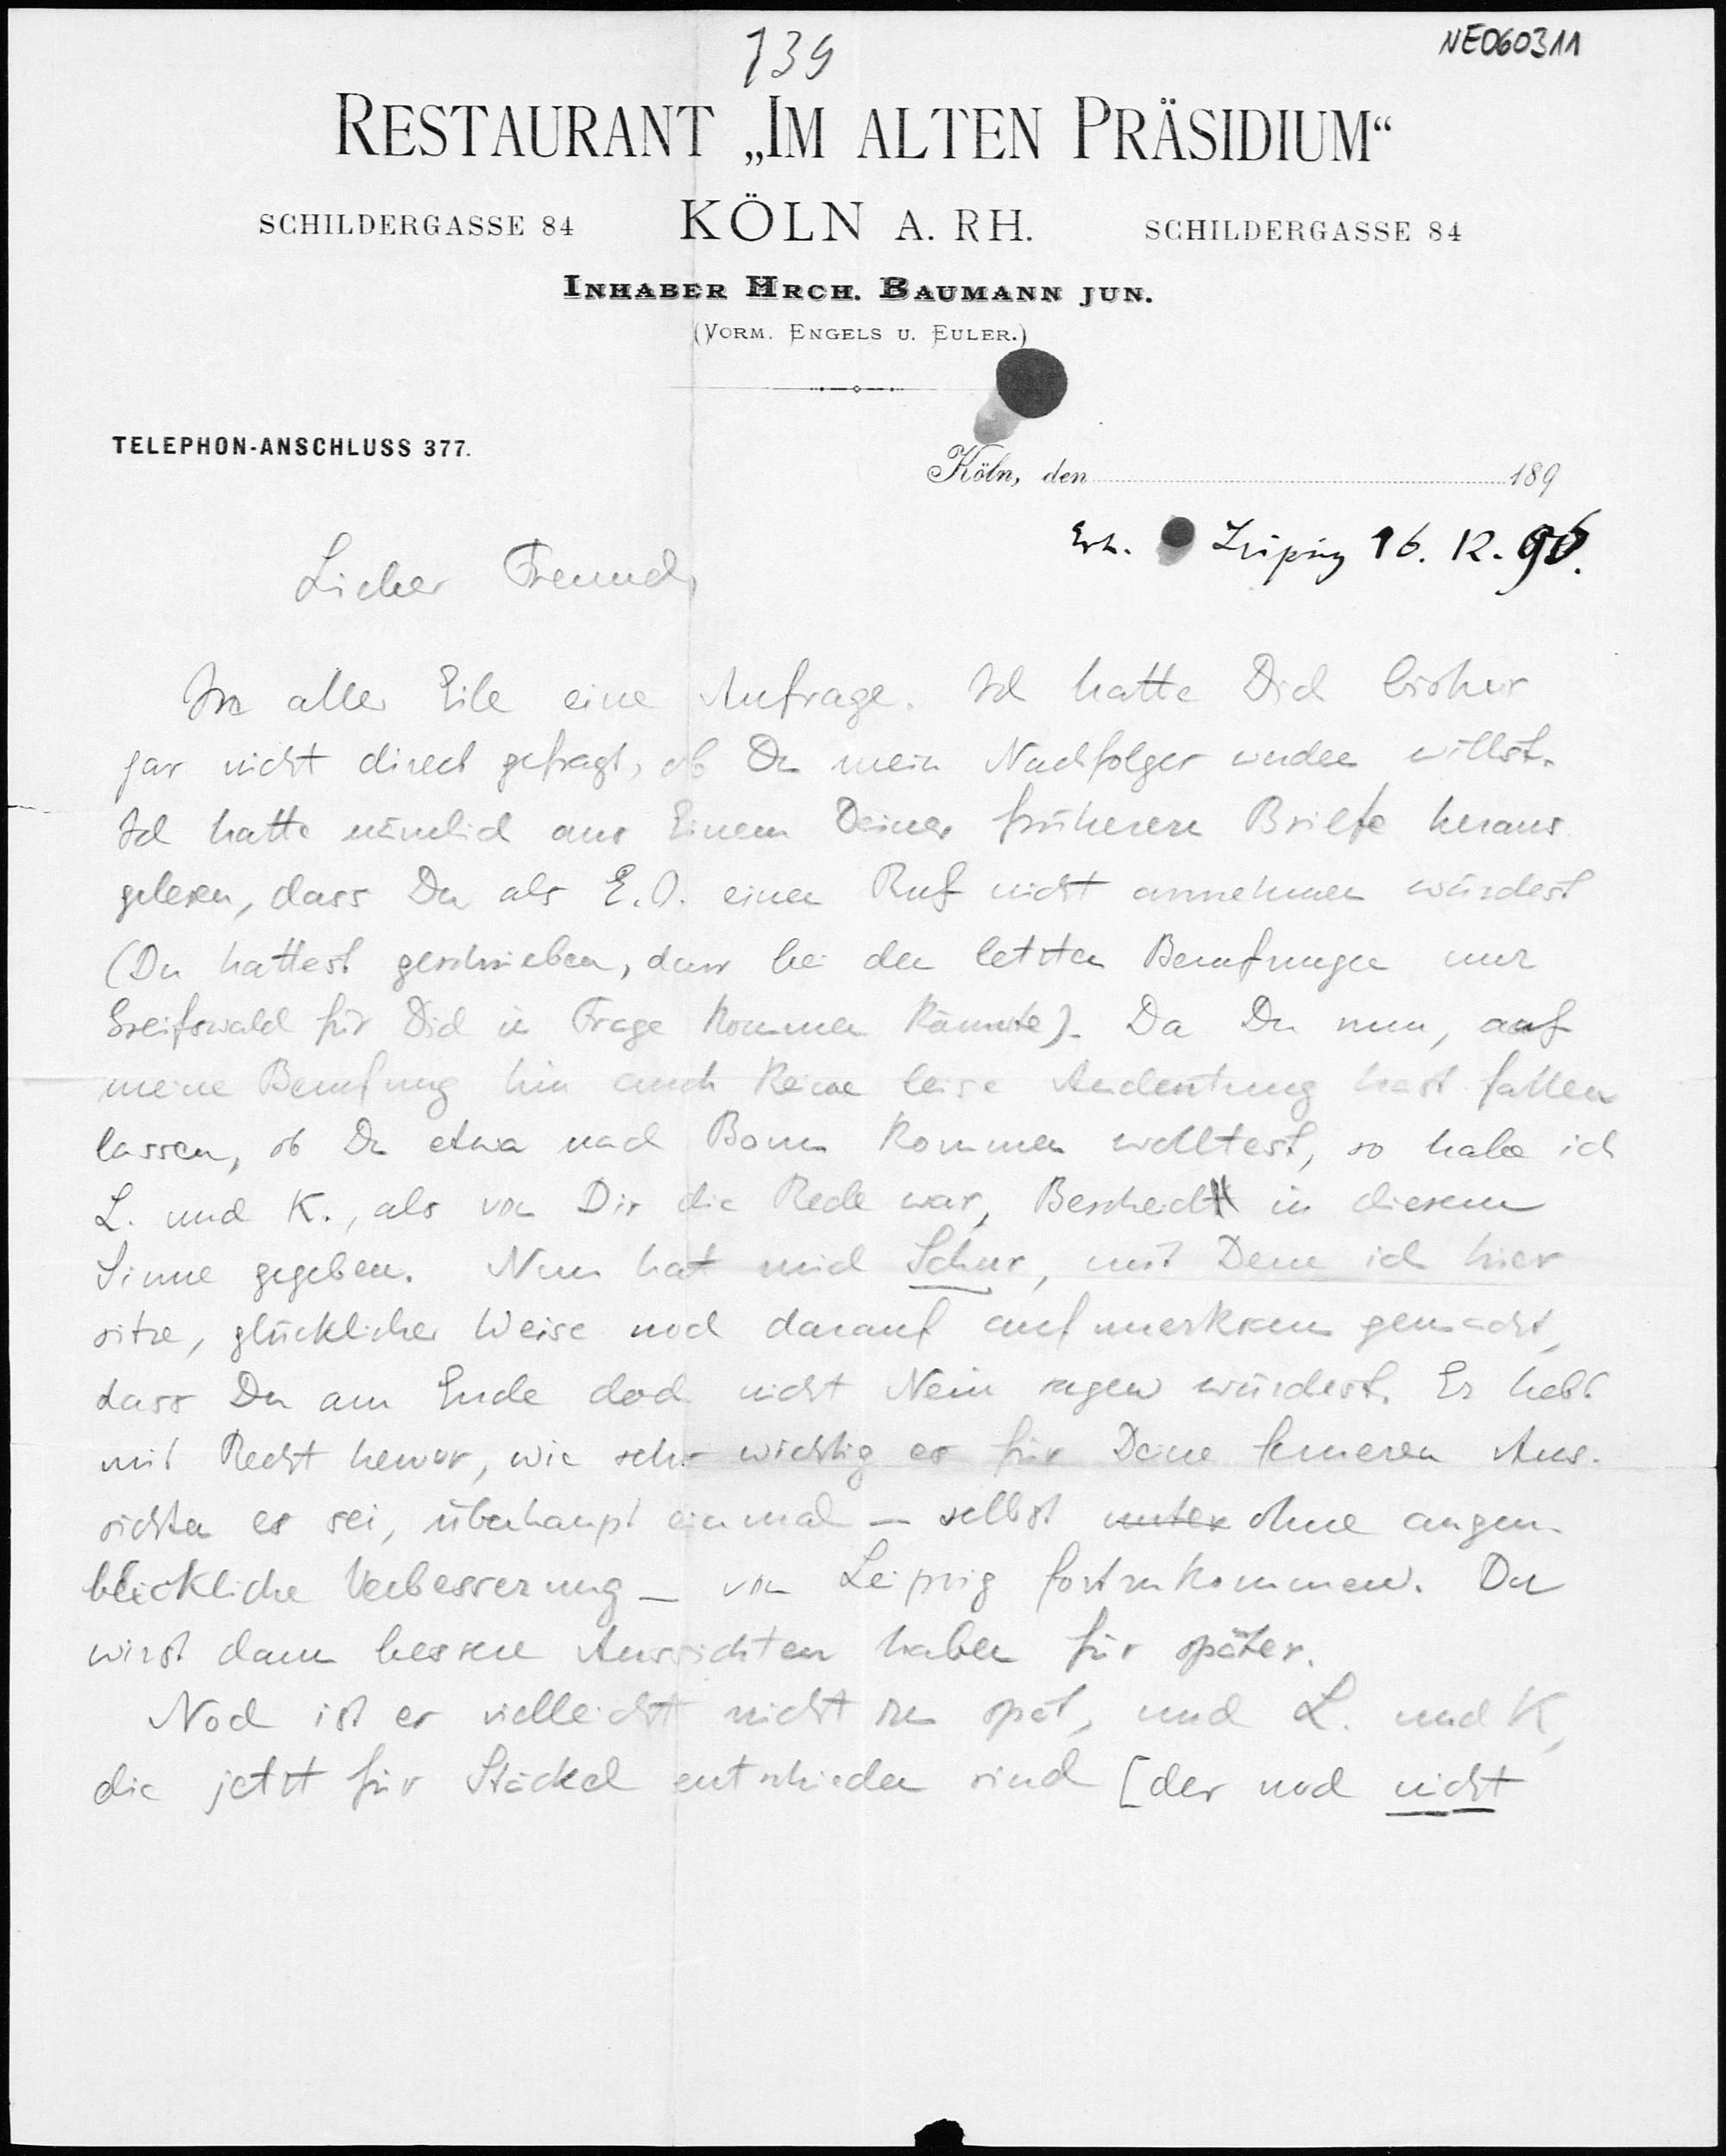 139
NE060311
RESTAURANT „IM ALTEN PRÄSIDIUM“
SCHILDERGASSE 84 KÖLN A. RH. SCHILDERGASSE 84
INHABER HRCH. BAUMANN JUN.
(VORM. ENGELS U. EULER.)
TELEPHON-ANSCHLUSS 377.
Köln, den 189
Erh. Leipzig 16. 12. 96.
Lieber Freund,
In aller Eile eine Anfrage. Ich hatte Dich bisher
gar nicht direct gefragt, ob Du mein Nachfolger werden willst.
Ich hatte nämlich aus Einem Deiner früheren Briefe heraus
gelesen, dass Du als E.O. einen Ruf nicht annehmen würdest
(Du hattest geschrieben, dass bei den letzten Berufungen nur
Greifswald für Dich in Frage kommen könnte). Da Du nun, auf
meine Berufung hin auch keine leise Andeutung hast fallen
lassen, ob Du etwa nach Bonn kommen wolltest, so habe ich
L. und K., als von Dir die Rede war, Bescheid in diesem
Sinne gegeben. Nun hat mich Schur, mit Dem ich hier
sitze, glücklicher Weise noch darauf aufmerksam gemacht,
dass Du am Ende doch nicht Nein sagen würdest. Er hebt
mit Recht hervor, wie sehr wichtig es für Deine ferneren Aus-
sichten es sei, überhaupt einmal — selbst unter ohne augen-
blickliche Verbesserung — von Leipzig fortzukommen. Du
wirst dann bessere Aussichten haben für später.
Noch ist es vielleicht nicht zu spät, und L. und K,
die jetzt für Stäckel entschieden sind [der noch nicht